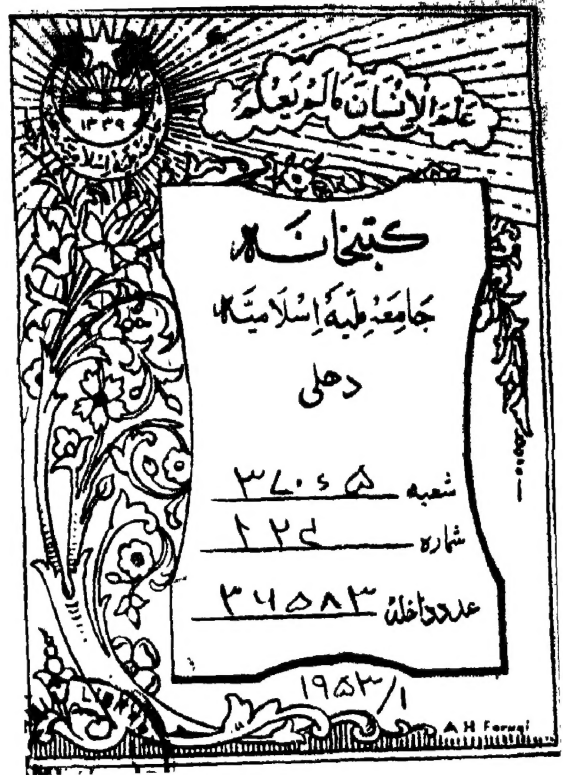 ۱۳۳۹
عَلَّمَ الْاِنْسَانَ مَا لَمْ يَعْلَمْ
کتبخانہ
جَامِعَہ مِلّیَہ اِسْلَامیَّہ
دهلی
شعبہ ۳۷۰ء۵
شمارہ
عدد داخلہ ۳۶۵۸۳
۱۹۵۳/۱
A H Faruqi